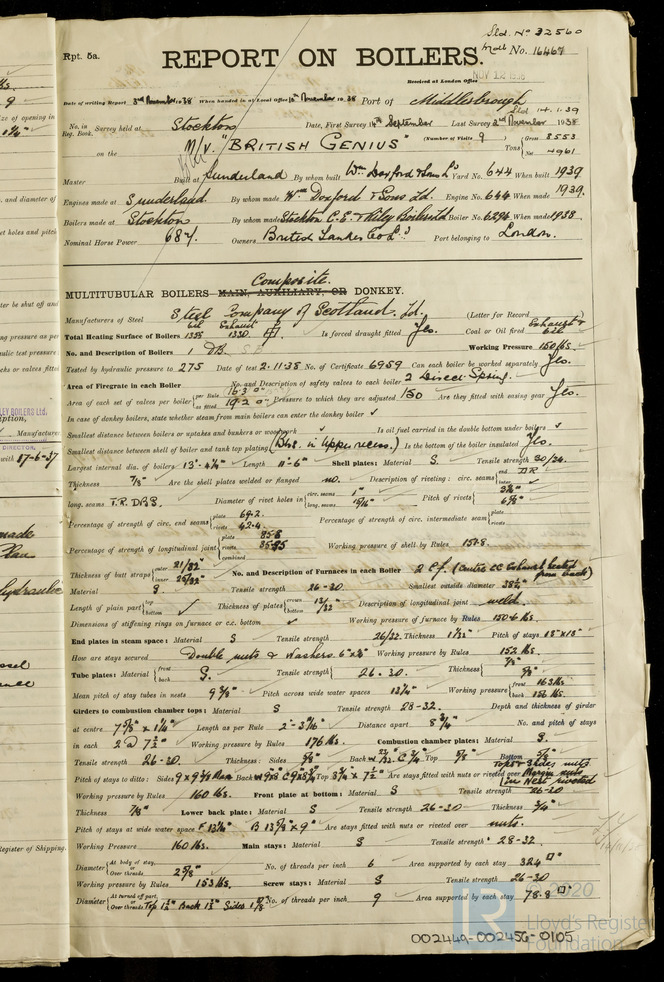 Sld. No 32560
Rpt. 5a.
REPORT ON BOILERS.
Mdb No. 16467
Received at London Office
NOV 12 1938
Date of writing Report 3rd November 1938 When handed in at Local Office 10th November 1938 Port of Middlesbrough
Sld 14.1.39
No. in Reg. Book. Survey held at Stockton Date, First Survey 14th September Last Survey 2nd November 1938
on the M/V. "BRITISH GENIUS" (Number of Visits 9) Tons Gross 8553 Net 4961
Master Built at Sunderland By whom built Wm Doxford & Sons Ld Yard No. 644 When built 1939
Engines made at Sunderland. By whom made Wm Doxford & Sons Ld. Engine No. 644 When made 1939.
Boilers made at Stockton By whom made Stockton C.E. & Riley Boilers Ld Boiler No. 6296 When made 1938.
Nominal Horse Power 687. Owners British Tanker Co Ld Port belonging to London.
Composite.
MULTITUBULAR BOILERS MAIN, AUXILIARY, OR DONKEY.
Manufacturers of Steel Steel Company of Scotland. Ld. (Letter for Record
Total Heating Surface of Boilers Oil 1338 Exhaust 1330 Is forced draught fitted Yes. Coal or Oil fired Exhaust & oil
No. and Description of Boilers 1 DB. Working Pressure 150 lbs.
Tested by hydraulic pressure to 275 Date of test 2.11.38 No. of Certificate 6959 Can each boiler be worked separately Yes.
Area of Firegrate in each Boiler No. and Description of safety valves to each boiler 2 Direct Spring.
Area of each set of valves per boiler per Rule 16.3 as fitted 19.2 Pressure to which they are adjusted 150 Are they fitted with easing gear Yes.
In case of donkey boilers, state whether steam from main boilers can enter the donkey boiler ✓
Smallest distance between boilers or uptakes and bunkers or woodwork ✓ Is oil fuel carried in the double bottom under boilers ✓
Smallest distance between shell of boiler and tank top plating (Blr. in Upper recess.) Is the bottom of the boiler insulated Yes.
Largest internal dia. of boilers 13'-4¼" Length 11'-6" Shell plates: Material S. Tensile strength 30/34.
Thickness 7/8" Are the shell plates welded or flanged no. Description of riveting: circ. seams end DR inter ✓
long. seams T.R. DBS Diameter of rivet holes in circ. seams 1" long. seams 15/16" Pitch of rivets
Percentage of strength of circ. end seams plate 69.2 rivets 42.4 Percentage of strength of circ. intermediate seam plate rivets
Percentage of strength of longitudinal joint plate 85.8 rivets combined Working pressure of shell by Rules 151.8.
Thickness of butt straps outer 21/32" inner 25/32" No. and Description of Furnaces in each Boiler 2 C.f. (Centre CC Exhaust heated from back)
Material S Tensile strength 26-30 Smallest outside diameter 38½"
Length of plain part top bottom ✓ Thickness of plates crown bottom 13/32 Description of longitudinal joint weld.
Dimensions of stiffening rings on furnace or c.c. bottom ✓ Working pressure of furnace by Rules 150.6 lbs.
End plates in steam space: Material S Tensile strength 26/32. Thickness 1 1/32" Pitch of stays 18" x 18"
How are stays secured Double nuts & Washers 6" x 5/8" Working pressure by Rules 152 lbs.
Tube plates: Material front back S. Tensile strength 26-30. Thickness 7/8" 5/8"
Mean pitch of stay tubes in nests 9 3/8" Pitch across wide water spaces 13½" Working pressure front 163 lbs. back 156 lbs.
Girders to combustion chamber tops: Material S Tensile strength 28-32 Depth and thickness of girder
at centre 7 5/8" x 1¼" Length as per Rule 2'-3 9/16" Distance apart 8¾" No. and pitch of stays
in each 2 @ 7½" Working pressure by Rules 176 lbs. Combustion chamber plates: Material S.
Tensile strength 26-30. Thickness: Sides 5/8" Back Top 5/8" Bottom 5/8"
Pitch of stays to ditto: Sides Back Top Are stays fitted with nuts or riveted over Top & Sides nuts Margin nuts (in Nest riveted
Working pressure by Rules 160 lbs. Front plate at bottom: Material S Tensile strength 26-30
Thickness 7/8" Lower back plate: Material S Tensile strength 26-30 Thickness 3/4"
Pitch of stays at wide water space F 13½" B 13 7/8" x 9" Are stays fitted with nuts or riveted over nuts.
Working Pressure 160 lbs. Main stays: Material S Tensile strength 28-32.
Diameter At body of stay, or Over threads 2 5/8" No. of threads per inch 6 Area supported by each stay 324 □"
Working pressure by Rules 153 lbs. Screw stays: Material S Tensile strength 26-30
Diameter At turned off part, or Over threads Top 1½" Back 1½" Sides 1 5/8 No. of threads per inch 9 Area supported by each stay 78.8 □"
LR
© 2020
Lloyd's Register
Foundation
002449-002456-0105
RILEY BOILERS Ltd.
DIRECTOR.
17-6-37